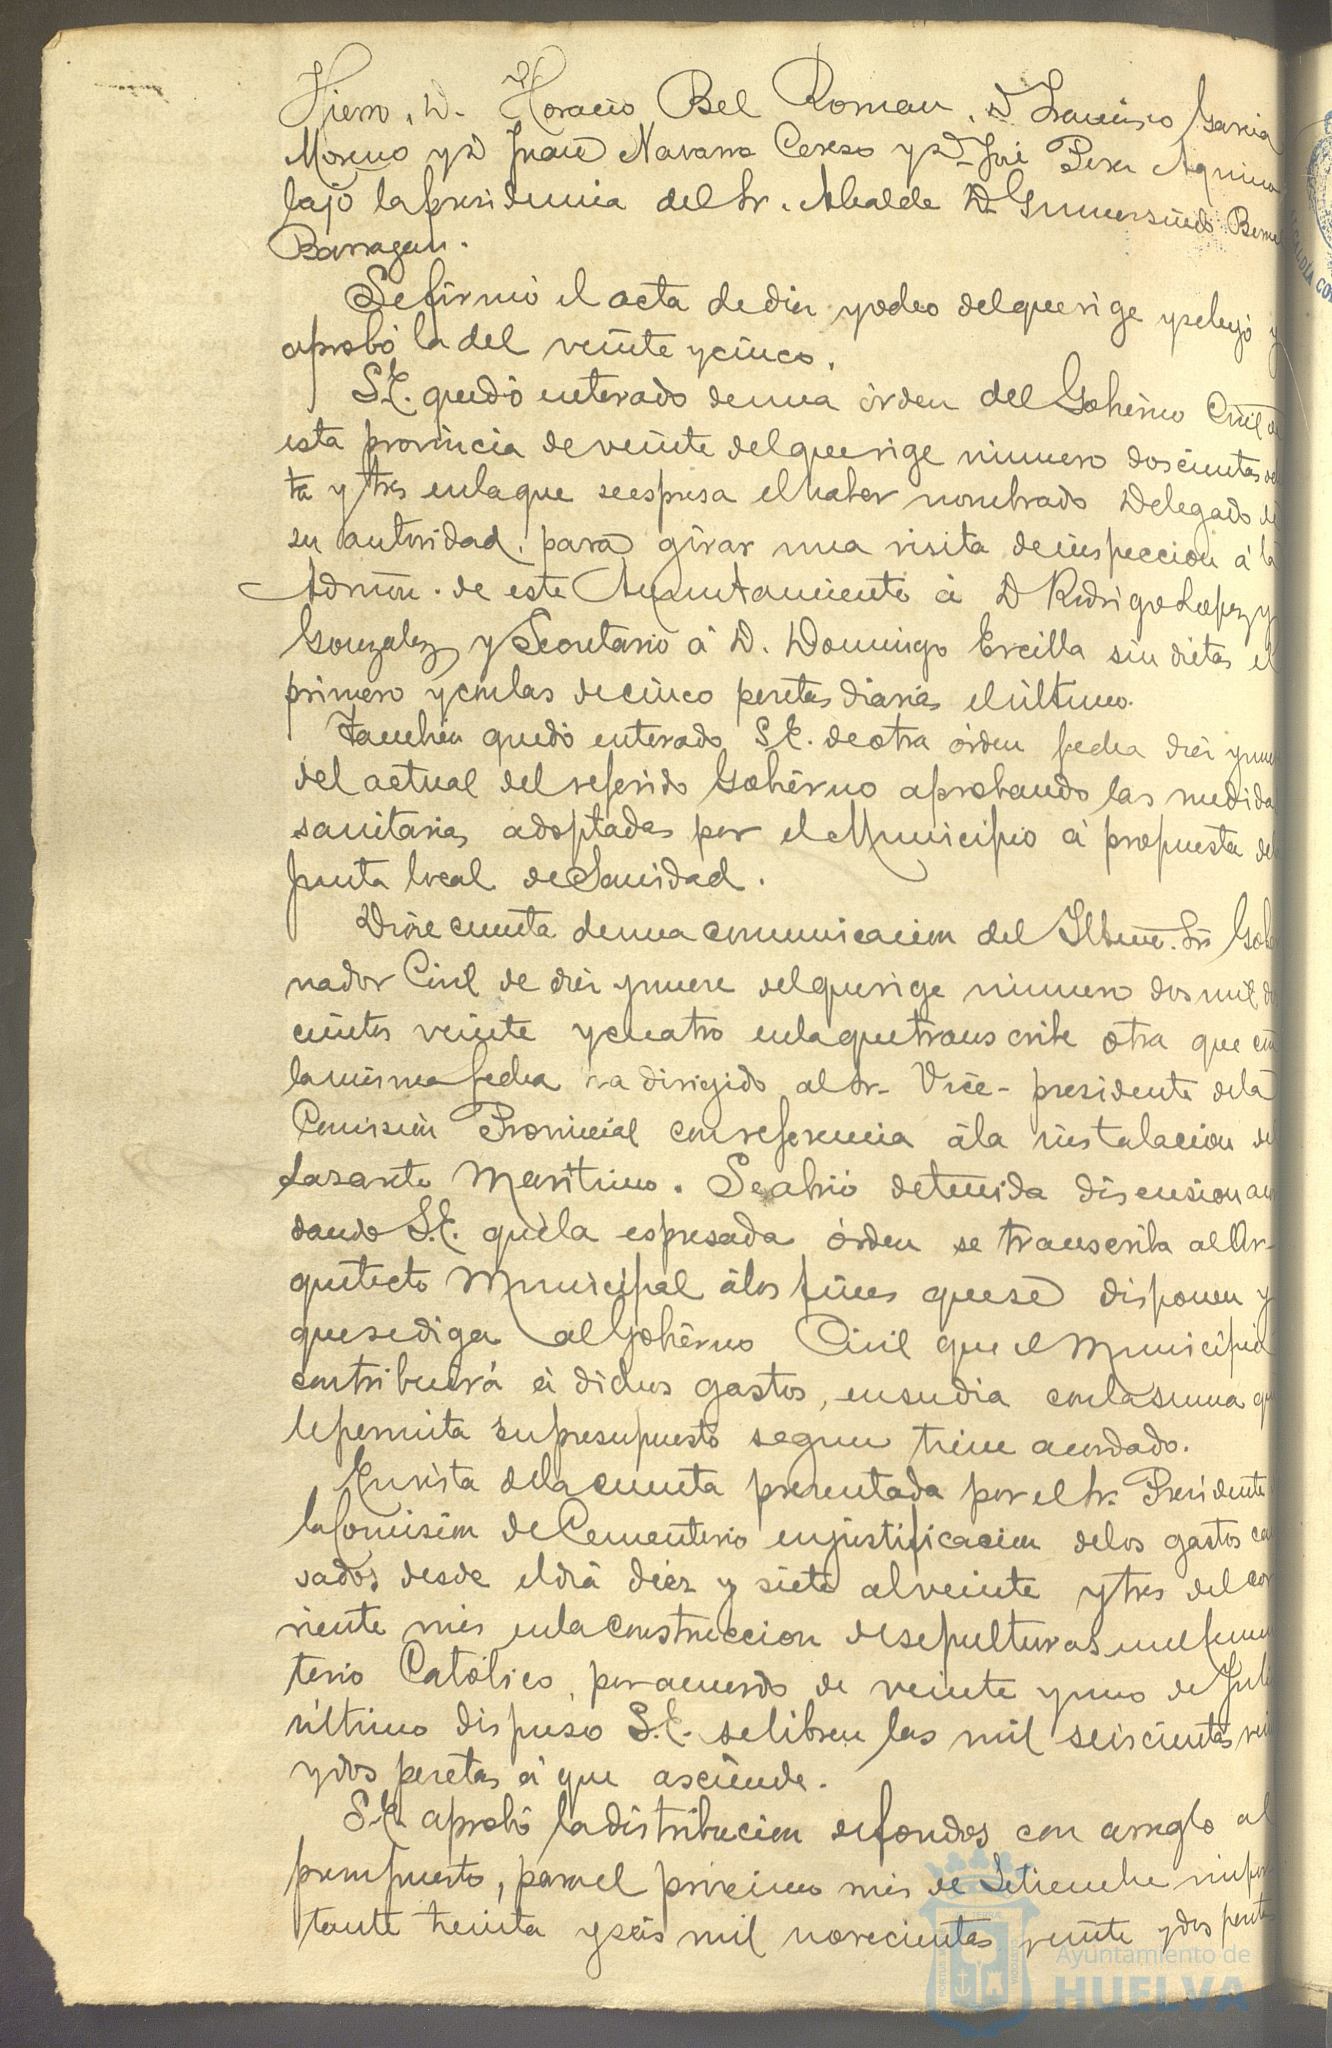 Hierro, D. Horacio Bel Roman, D Francisco Garcia
Moreno y D Juan Navarro Cerezo y D. José Perez
bajo la presidencia del Sr. Alcalde D. Gumersindo
Barragan.
Se firmó el acta de diez y ocho del que rige y se leyó y
aprobó la del veinte y cinco.
S.E. quedó enterado de una órden del Gobierno Civil de
esta provincia de veinte del que rige número doscientos
ta y tres en la que se espresa el haber nombrado Delegado de
su autoridad, para girar una visita de inspeccion á la
Admon. de este Ayuntamiento á D Rodrigo Lopez y
Gonzalez y Secretario á D. Domingo Ercilla sin dietas el
primero y con las de cinco pesetas diarias el último.
Tambien quedó enterado S.E. de otra órden fecha diez y nueve
del actual del referido Gobierno aprobando las medidas
sanitarias adoptadas por el Municipio á propuesta de
Junta local de Sanidad.
Dióse cuenta de una comunicacion del Iltmo. Sr Gober
nador Civil de diez y nueve del que rige número dos mil dos
cientos veinte y cuatro en la que transcribe otra que con
la misma fecha ha dirigido al Sr. Vice-presidente de la
Comision Provincial con referencia á la instalacion de
Lazareto Maritimo. Se abrió detenida discusion acor
dando S.E. que la espresada órden se transcriba al Ar-
quitecto Municipal á los fines que se disponen y
que se diga al Gobierno Civil que el Municipio
contribuirá á dichos gastos, en su dia con la suma que
le permita su presupuesto segun tiene acordado.
En vista de la cuenta presentada por el Sr. Presidente
la Comision de Cementerio en justificacion de los gastos cau
sados desde el dia diez y siete al veinte y tres del cor
riente mes en la construccion de sepulturas en el Cemen
terio Católico, por acuerdo de veinte y uno de Julio
último dispuso S.E. se libren las mil seiscientas vein
y dos pesetas á que asciende.
S.E. aprobó la distribucion de fondos con arreglo al
presupuesto, para el próximo mes de Setiembre impor
tante treinta y seis mil novecientas veinte y dos pesetas
Ayuntamiento de
HUELVA